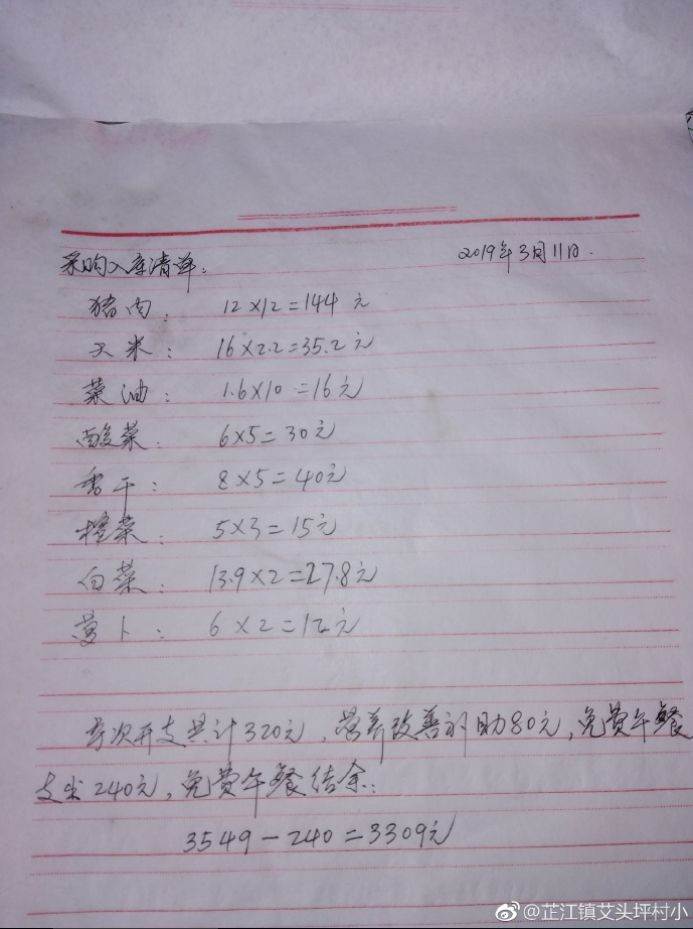 采购入库清单：
2019年3月11日.
猪肉： 12×12=144元
大米： 16×2.2=35.2元
菜油： 1.6×10=16元
酸菜： 6×5=30元
香干： 8×5=40元
榨菜： 5×3=15元
白菜： 13.9×2=27.8元
萝卜： 6×2=12元
本次开支共计320元，营养改善补助80元，免费午餐
支出240元，免费午餐结余：
3549-240=3309元
@芷江镇艾头坪村小